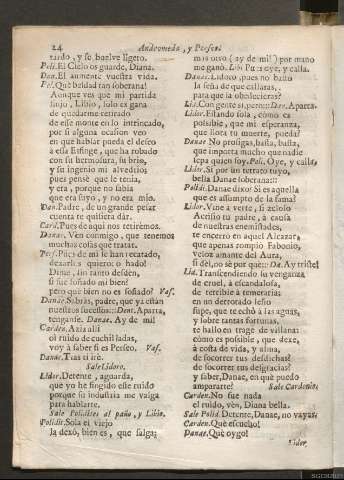 24 Andromeda, y Perseo.
tardo, y se buelve ligero.
Poli. El Cielo os guarde, Diana.
Dan. El aumente vuestra vida.
Pol. Què beldad tan soberana!
Aunque ves que mi partida
finjo, Libio, solo es gana
de quedarme retirado
de esse monte en lo intrincado,
por si alguna ocasion veo
en que hablar pueda el deseo
à essa Esfinge, que ha robado
con su hermosura, su brio,
y su ingenio mi alvedrio;
pues pensè que le tenia,
y era, porque no sabia
que era suyo, y no era mio.
Dan. Padre, de un grande pesar
cuenta te quisiera dàr.
Card. Pues de aqui nos retirèmos.
Danae. Ven conmigo, que tenemos
muchas cosas que tratar.
Pers. Pues de mi se han recatado,
dexarlos quiero: ò hado!
Dime, sin tanto desden,
si fue soñado mi bien?
pero què bien no es soñado? Vas.
Danae. Sabràs, padre, que yà estàn
nuestros sucessos::: Dent. Aparta,
tenganse. Danae. Ay de mi!
Carden. Azia alli
el ruido de cuchilladas,
voy à saber si es Perseo. Vas.
Danae. Tras ti irè.
Sale Lidoro.
Lidor. Detente, aguarda,
que yo he fingido esse ruido
porque su industria me valga
para hablarte.
Sale Polidites al paño, y Libio.
Polidit. Sola el viejo
la dexò, bien es, que salga;
mas otro (ay de mi!) por mano
me ganò. Lib. Pues oye, y calla.
Danae. Lidoro, pues no basto
la seña de que callaras,
para que la obedecieras?
Lid. Con gente sì, pero::: Dan. Aparta.
Lidor. Estando sola, còmo es
possible, que mi esperanza,
que llora tu muerte, pueda?
Danae. No prosigas, basta, basta,
que importa mucho que nadie
sepa quien soy. Pol. Oye, y calla,
Lidor. Si por un retrato tuyo,
bella Danae soberana:::
Polidi. Danae dixo? Si es aquella
que es assumpto de la fama?
Lidor. Vine à verte, si zeloso
Acrisio tu padre, à causa
de nuestras enemistades,
te encerrò en aquel Alcazar,
que apenas rompiò Fabonio,
veloz amante del Aura,
si dèl, no sè por què::: Da. Ay triste!
Lid. Transcendiendo su venganza
de cruel, à escandalosa,
de terrible à temeraria:
en un derrotado leño
supe, que te echò à las aguas,
y sobre tantas fortunas,
te hallo en trage de villana:
còmo es possible, que dexe,
à costa de vida, y alma,
de socorrer tus desdichas?
de socorrer tus desgracias?
y saber, Danae, en què puedo
ampararte? Sale Cardenio.
Carden. No fue nada
el ruido, vèn, Diana bella.
Sale Polid. Detente, Danae, no vayas.
Carden. Què escucho!
Danae. Què oygo!
Lidor.